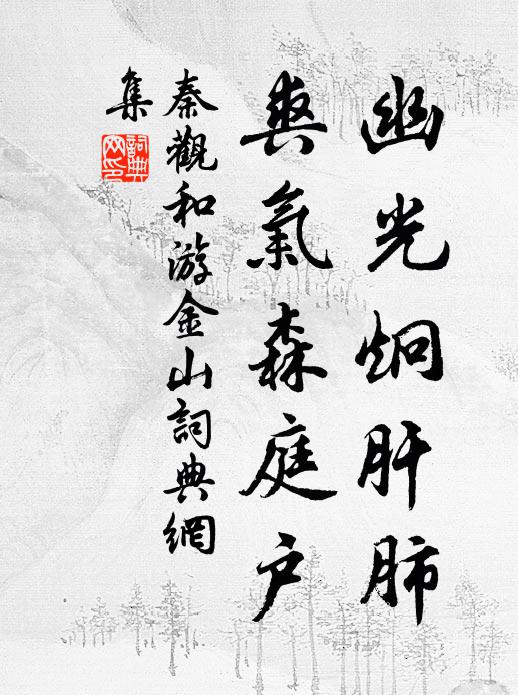 幽光炯肝肺
爽氣森庭户
秦觀和游金山詞典網
集
詞典网印